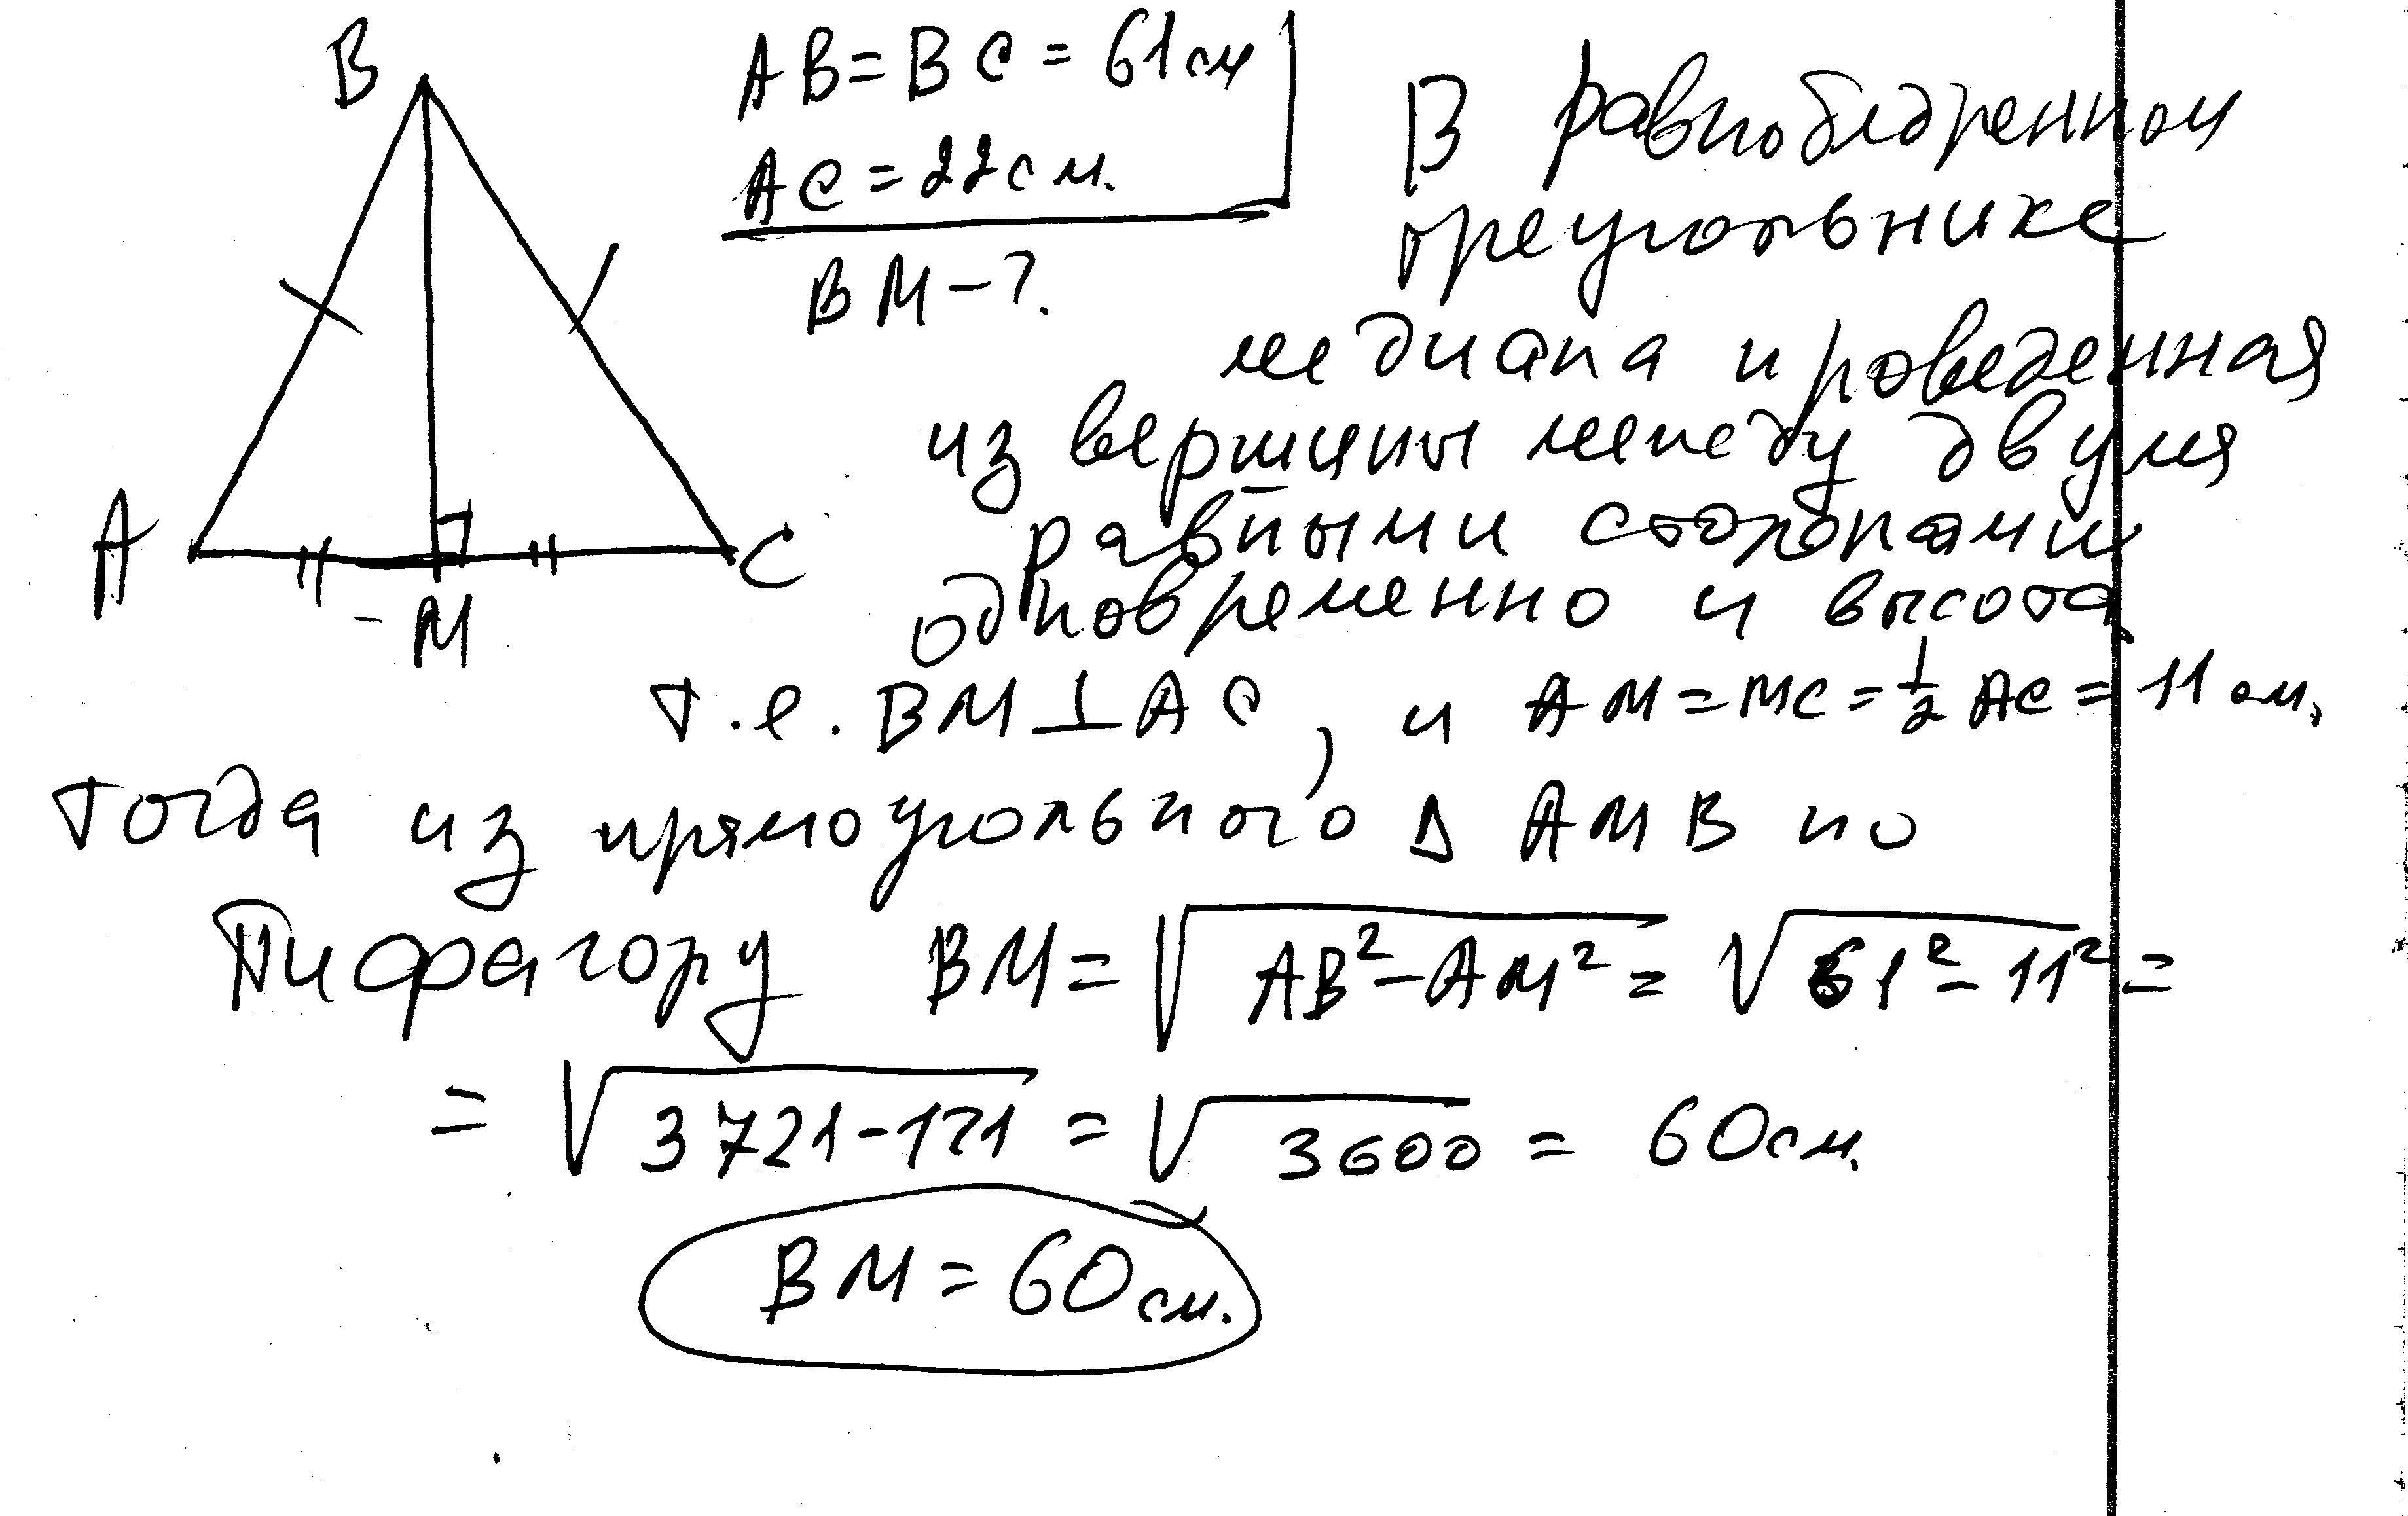 B
AB = BC = 61 см
AC = 22 см.
BM - ?
A
C
M
В равнобедренном
треугольнике
медиана проведенная
из вершины между двумя
равными сторонами
одновременно и высота
т.е. BM ⊥ AC, и AM = MC = 1/2 AC = 11 см.
Тогда из прямоугольного Δ AMB по
Пифагору BM = √(AB² - AM²) = √(61² - 11²) =
= √(3721 - 121) = √3600 = 60 см.
BM = 60 см.